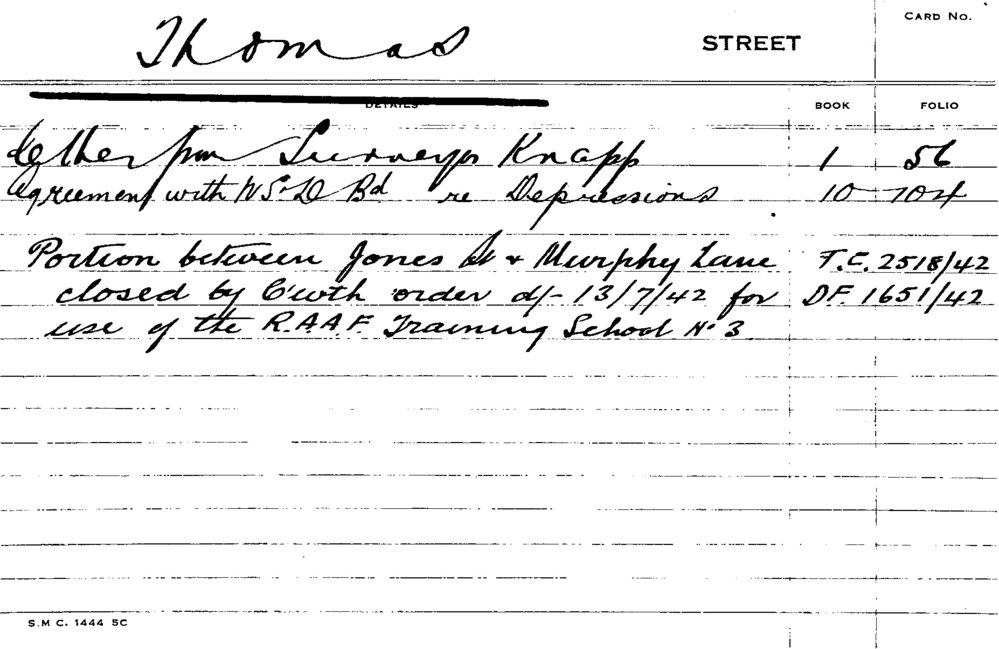 CARD No.
Thomas STREET
DETAILS BOOK FOLIO
Letter from Surveyor Knapp 1 56
Agreement with W S & D Bd re Depressions 10 704
Portion between Jones St & Murphy Lane T.C. 2518/42
closed by C'wth order d/- 13/7/42 for DF. 1651/42
use of the R.A.A.F. Training School No 3
S.M C. 1444 5C